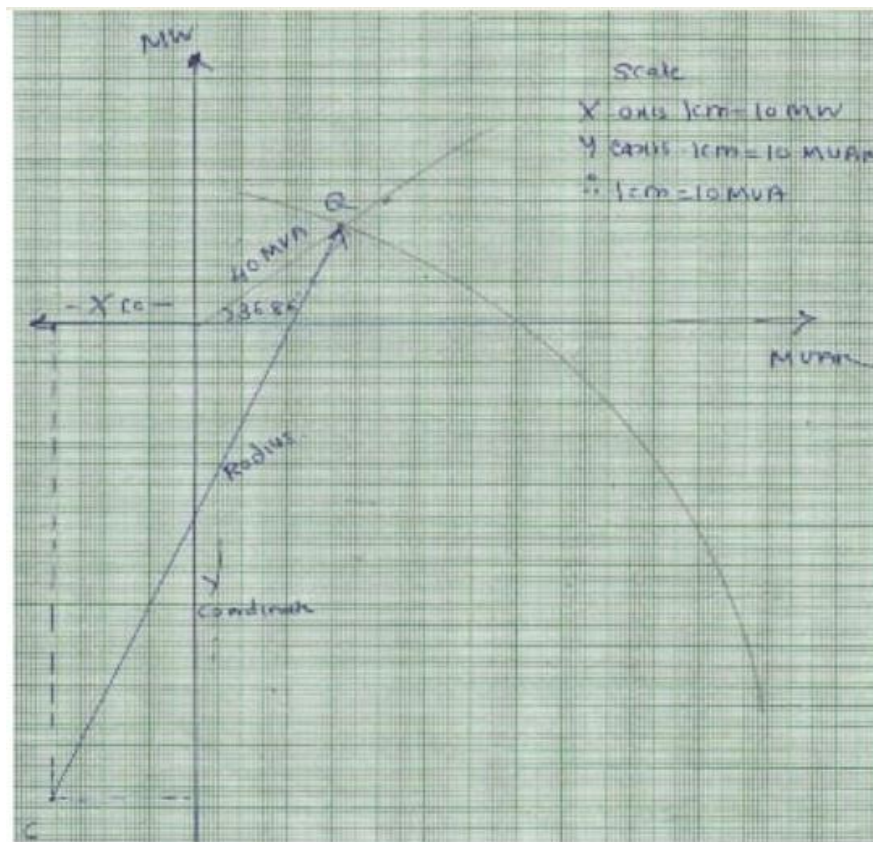 MW
Scale
X axis 1cm = 10 MW
Y axis 1cm = 10 MVAR
∴ 1cm = 10 MVA
Q
40 MVA
36.86
- X co -
MVAR
Radius
Y
Coordinate
C